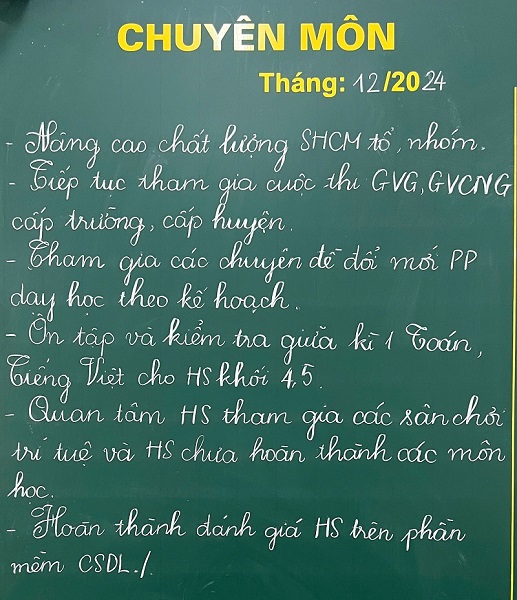 CHUYÊN MÔN
Tháng: 12/2024
- Nâng cao chất lượng SHCM tổ, nhóm.
- Tiếp tục tham gia cuộc thi GVG, GVCNG
cấp trường, cấp huyện.
- Tham gia các chuyên đề đổi mới PP
dạy học theo kế hoạch.
- Ôn tập và kiểm tra giữa kì 1 Toán,
Tiếng Việt cho HS khối 4,5.
- Quan tâm HS tham gia các sân chơi
trí tuệ và HS chưa hoàn thành các môn
học.
- Hoàn thành đánh giá HS trên phần
mềm CSDL./.